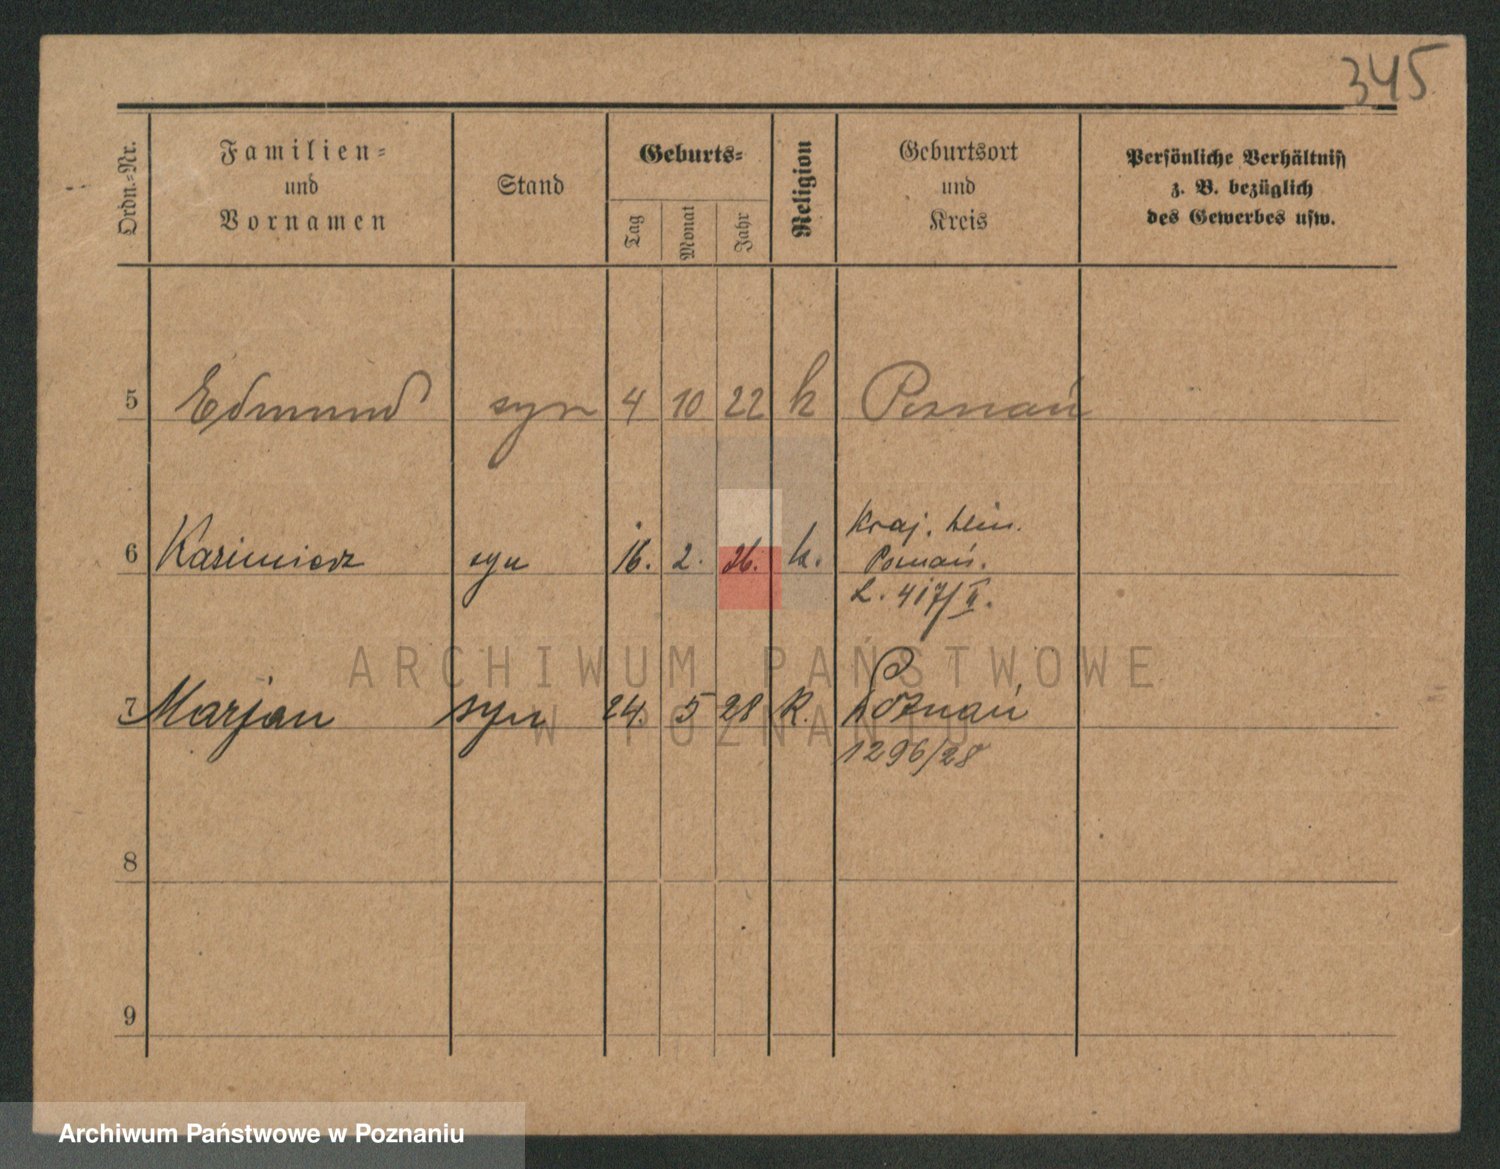 345
Ordn.-Nr.
Familien-
und
Vornamen
Stand
Geburts-
Tag
Monat
Jahr
Religion
Geburtsort
und
Kreis
Persönliche Verhältniss
z. B. bezüglich
des Gewerbes usw.
5 Edmund syn 4 10 22 k Poznań
6 Kazimierz syn 16. 2. 26. k. Kraj.
Poznań.
L. 417/II.
7 Marjan syn 24. 5 28 k. Poznań
1296/28
8
9
ARCHIWUM PAŃSTWOWE
W POZNANIU
Archiwum Państwowe w Poznaniu